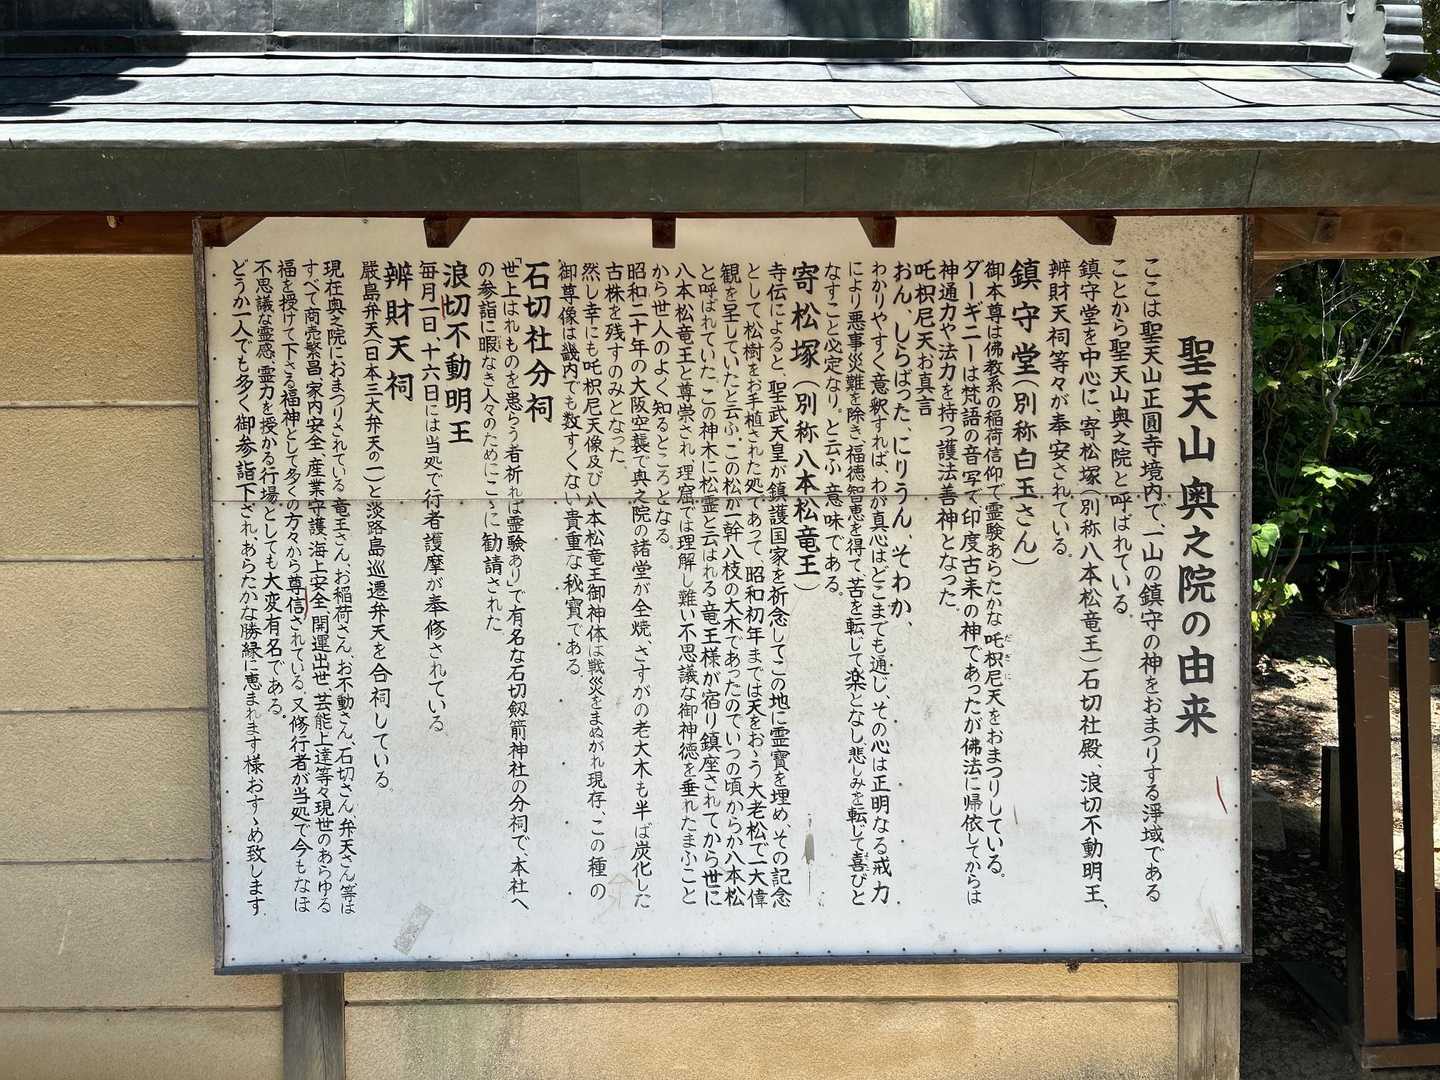 聖天山奥之院の由来
ここは聖天山正圓寺境内で、一山の鎮守の神をおまつりする浄域である
ことから聖天山奥之院と呼ばれている。
鎮守堂を中心に、寄松塚(別称八本松竜王)石切社殿、浪切不動明王、
辨財天祠等々が奉安されている。
鎮守堂(別称白玉さん)
御本尊は佛教系の稲荷信仰で霊験あらたかな吒枳尼天をおまつりしている。
だぎに
ダーギニーは梵語の音写で印度古来の神であったが佛法に帰依してからは
神通力や法力を持つ護法善神となった。
吒枳尼天お真言
おん、しらばった、にりうん、そわか、
わかりやすく意釈すれば、わが真心はどこまでも通し、その心は正明なる戒力
により悪事災難を除き、福徳智恵を得て、苦を転じて楽となし、悲しみを転じて喜びと
なすこと必定なり。と云ふ意味である。
寄松塚(別称八本松竜王)
寺伝によると、聖武天皇が鎮護国家を祈念してこの地に霊寶を埋め、その記念
として松樹をお手植された処であって、昭和初年までは天をおゝう大老松で一大偉
観を呈していたと云ふ、この松が一幹八枝の大木であったのでいつの頃からか八本松
と呼ばれていた、この神木に松霊と云はれる竜王様が宿り鎮座されてから世に
八本松竜王と尊崇され、理窟では理解し難い不思議な御神徳を垂れたまふこと
から世人のよく知るところとなる。
昭和二十年の大阪空襲で奥之院の諸堂が全焼、さすがの老大木も半ば炭化した
古株を残すのみとなった。
然し幸にも吒枳尼天像及び八本松竜王御神体は戦災をまぬがれ現存、この種の
御尊像は畿内でも数すくない貴重な秘寶である。
石切社分祠
「世上はれものを患らう者祈れば霊験あり」で有名な石切劔箭神社の分祠で、本社へ
の参詣に暇なき人々のためにこゝに勧請された
浪切不動明王
毎月一日、十六日には当処で行者護摩が奉修されている
辨財天祠
嚴島弁天(日本三大弁天の一)と淡路島巡遷弁天を合祠している
現在奥之院におまつりされている竜王さん、お稲荷さん、お不動さん、石切さん、弁天さん等は
すべて商売繁昌、家内安全、産業守護、海上安全、開運出世、芸能上達等々現世のあらゆる
福を授けて下さる福神として多くの方々から尊信されている、又修行者が当処で今もなほ
不思議な霊感、霊力を授かる行場としても大変有名である。
どうか一人でも多く御参詣下され、あらたかな勝縁に恵まれます様おすゝめ致します